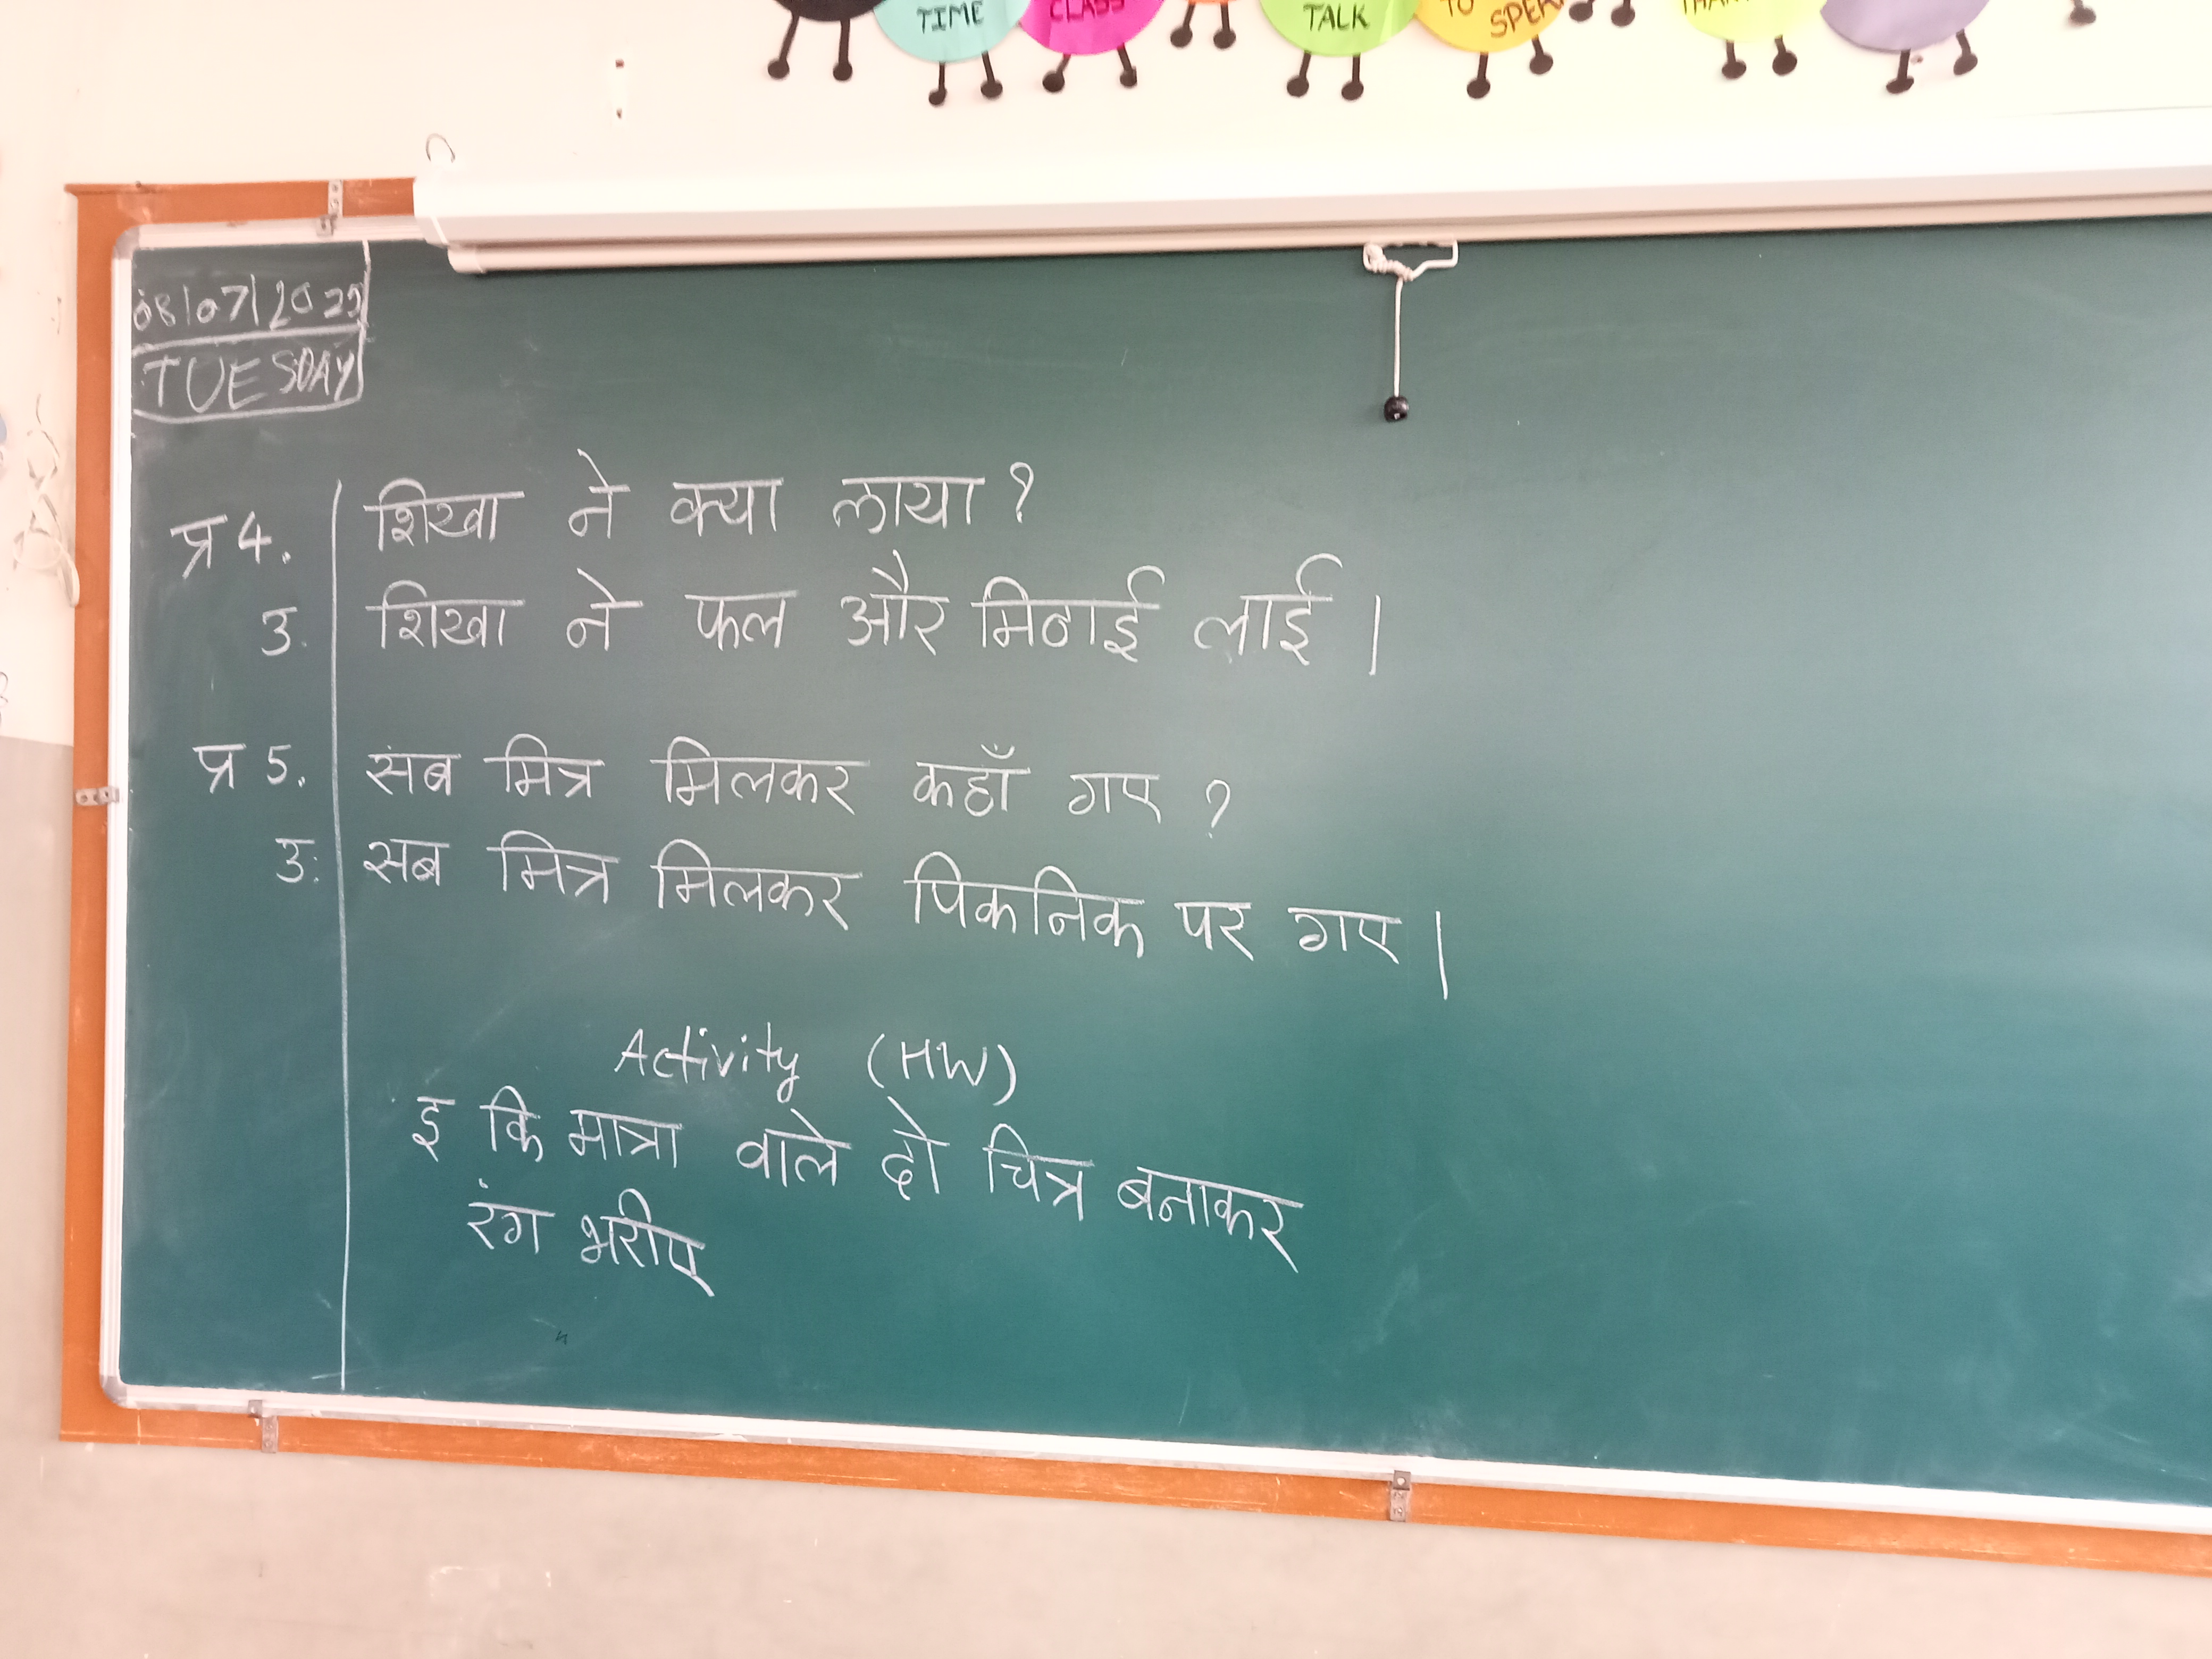 TIME
CLASS
TALK
TO
08/07/2025
TUESDAY
प्र 4. शिखा ने क्या लाया ?
उ. शिखा ने फल और मिठाई लाई |
प्र 5. सब मित्र मिलकर कहाँ गए ?
उ. सब मित्र मिलकर पिकनिक पर गए |
Activity (HW)
इ कि मात्रा वाले दो चित्र बनाकर
रंग भरीए